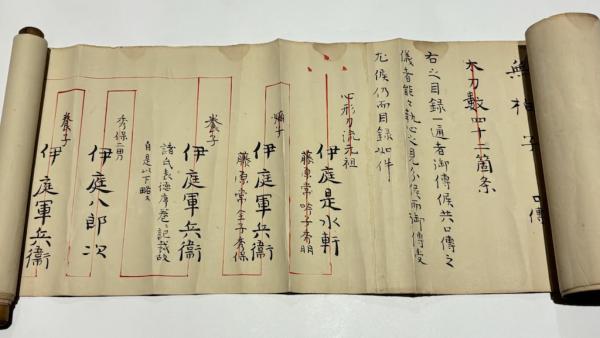 無拍子 口傳
太刀數四十二箇条
右之目録一通者御傳候共口傳之
儀者能々執心之見分候而御傳授
尤候仍而目録如件
心形刀流元祖
伊庭是水軒
藤原常吟子秀明
嫡子
伊庭軍兵衞
藤原常全子秀保
養子
伊庭軍兵衞
諸氏表海摩巻記載故
自是以下略之
秀保二男
伊庭八郎次
養子
伊庭軍兵衞